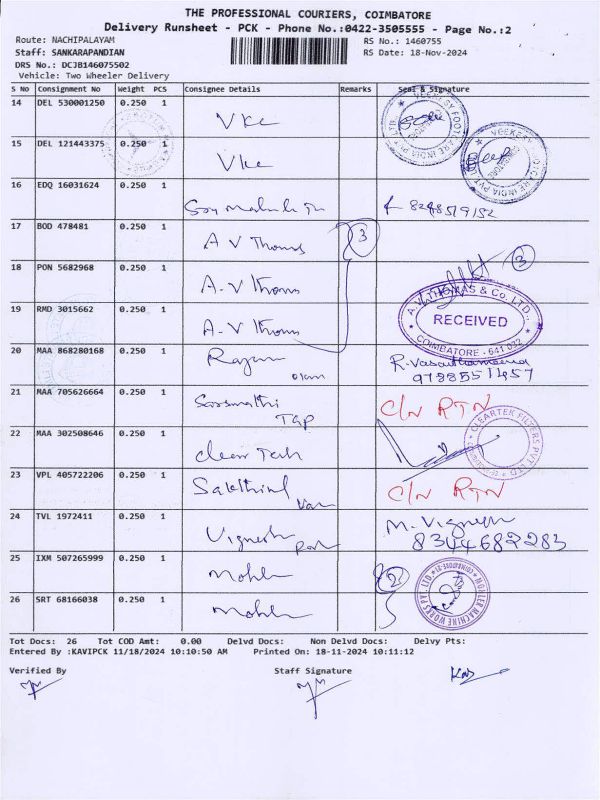 THE PROFESSIONAL COURIERS, COIMBATORE
Delivery Runsheet - PCK - Phone No.:0422-3505555 - Page No.:2
Route: NACHIPALAYAM RS No.: 1460755
Staff: SANKARAPANDIAN RS Date: 18-Nov-2024
DRS No.: DCJB146075502
Vehicle: Two Wheeler Delivery
S No Consignment No Weight PCS Consignee Details Remarks Seal & Signature
14 DEL 530001250 0.250 1 VKC
15 DEL 121443375 0.250 1 VKC
16 EDQ 16031624 0.250 1 8248519152
17 BOD 478481 0.250 1 A V Thomas 3
18 PON 5682968 0.250 1 A.V Thomas 3
A.V. THOMAS & Co. LTD.
19 RMD 3015662 0.250 1 A.V Thomas RECEIVED
COIMBATORE - 641 032
20 MAA 868280168 0.250 1 Rajam
9788551457
21 MAA 705626664 0.250 1 C/N RTN
22 MAA 302508646 0.250 1 Clear Tech CLEARTEK FILTERS PVT LTD
23 VPL 405722206 0.250 1 Sakthivel Van C/N RTN
24 TVL 1972411 0.250 1 Vignesh M. Vignesh
8344682283
25 IXM 507265999 0.250 1 Mohler 2 MOHLER MACHINE WORKS PVT. LTD.
26 SRT 68166038 0.250 1 Mohler
Tot Docs: 26 Tot COD Amt: 0.00 Delvd Docs: Non Delvd Docs: Delvy Pts:
Entered By :KAVIPCK 11/18/2024 10:10:50 AM Printed On: 18-11-2024 10:11:12
Verified By Staff Signature